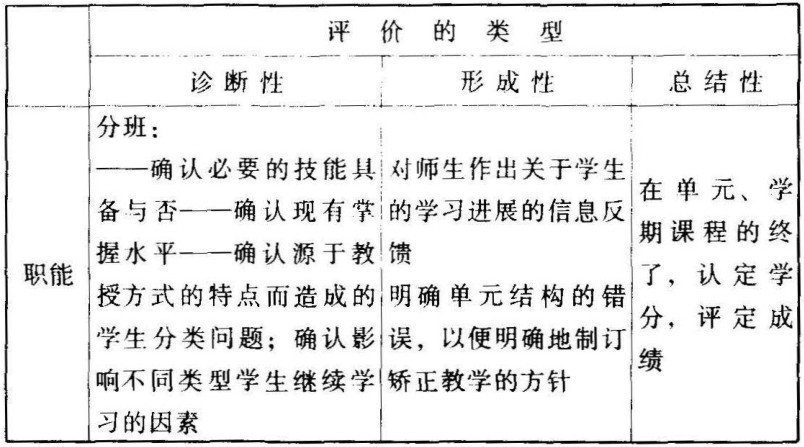 评价的类型
诊断性
形成性
总结性
职能
分班：
——确认必要的技能具
备与否——确认现有掌
握水平——确认源于教
授方式的特点而造成的
学生分类问题；确认影
响不同类型学生继续学
习的因素
对师生作出关于学生
的学习进展的信息反
馈
明确单元结构的错
误，以便明确地制订
矫正教学的方针
在单元、学
期课程的终
了，认定学
分，评定成
绩